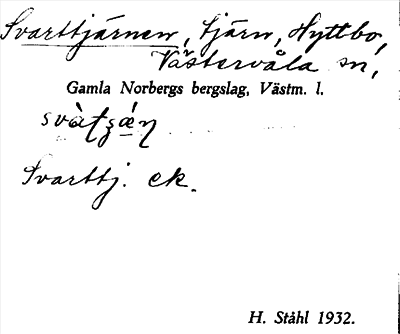 Svarttjärnen, tjärn, Hyttbo,
Västervåla sn,
Gamla Norbergs bergslag, Västm. l.
Svarttj. ek.
H. Ståhl 1932.